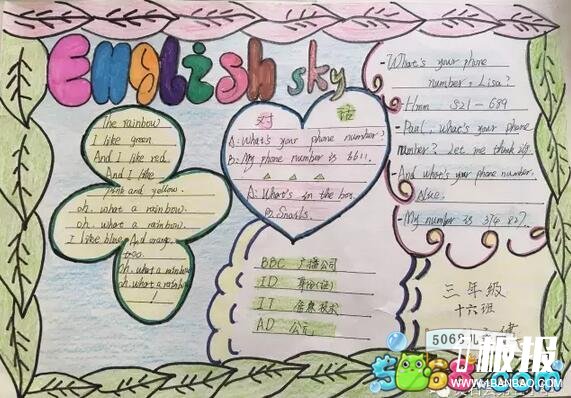 ENGLISH sky
The rainbow
I like green
And I like red
And I like
pink and yellow.
oh, what a rainbow.
oh, what a rainbow.
I like blue And orange,
too.
oh, what a rainbow
oh, what a rainbow
!
对 话
A: What's your phone number?
B: My phone number is 3611.
A: What's in the box.
B: Snails.
BBC 广播公司
ID 身份(证)
IT 信息技术
AD 公元
-What's your phone
number, Lisa?
-Hmm 521-689
-Paul, what's your phone
number? Let me think
And what's your phone number,
-My number is 376 827.
三年级
十六班
5068儿
板报
5068.com
WWW.1BANBAO.COM